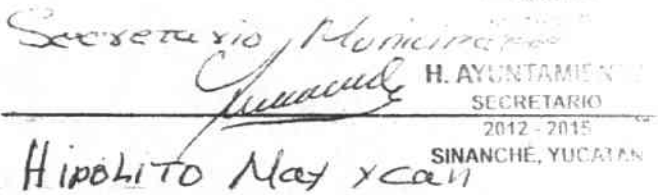 Secretario Municipal
H. AYUNTAMIENTO
SECRETARIO
2012 - 2015
SINANCHÉ, YUCATAN
HIPOLITO May Xcan